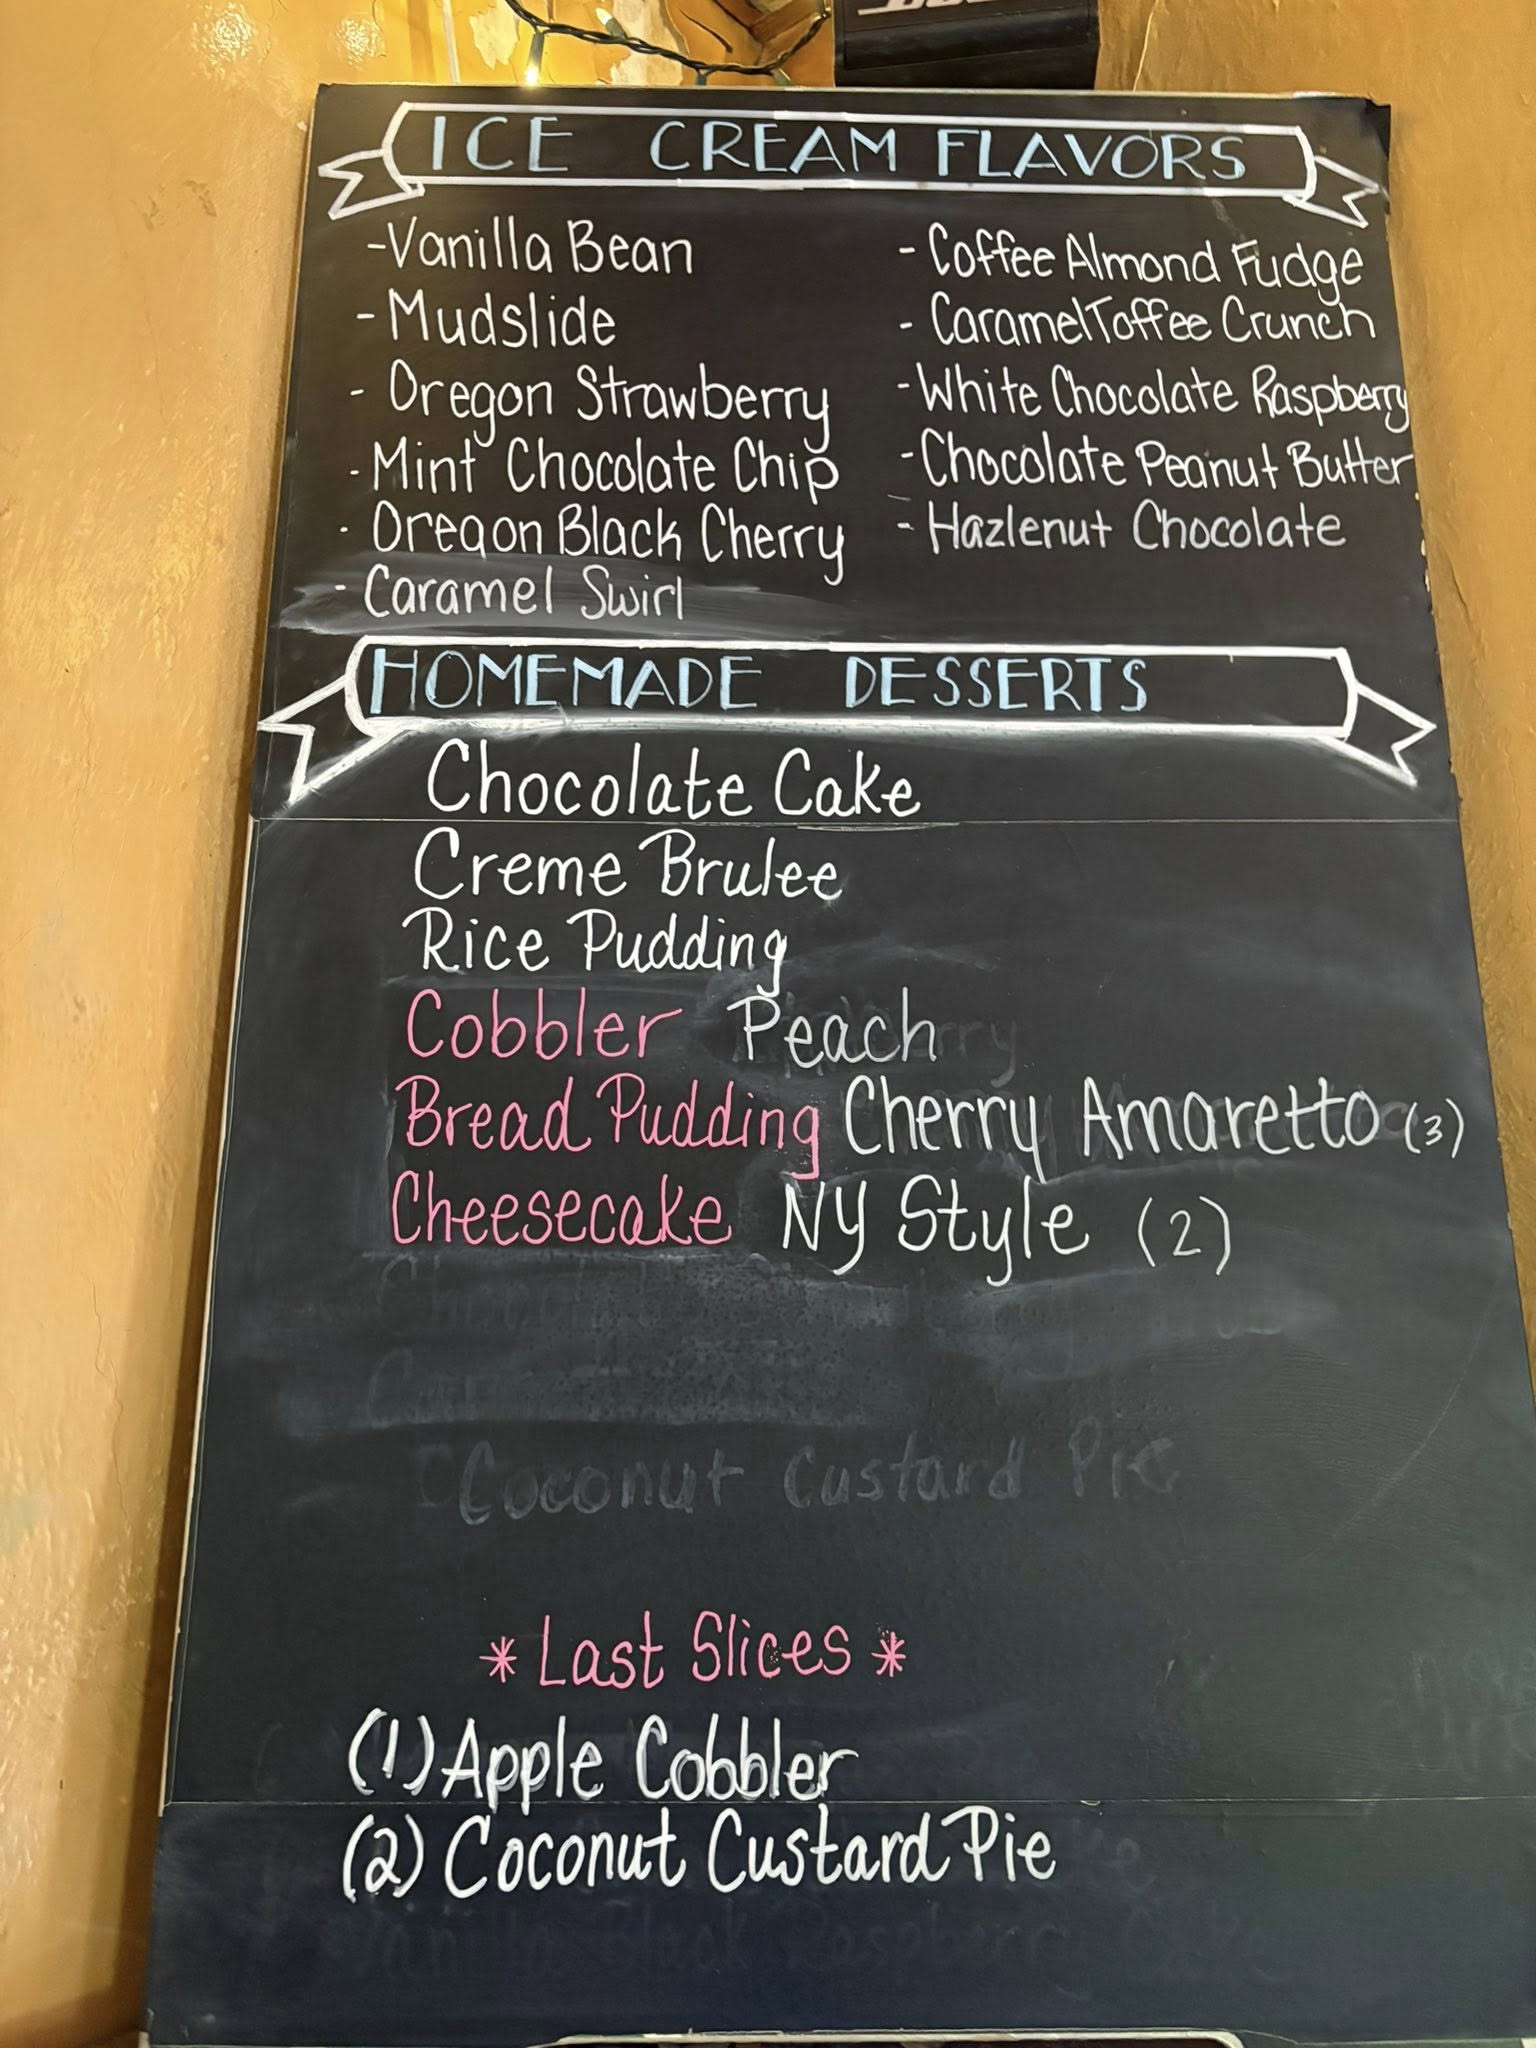 ICE CREAM FLAVORS
-Vanilla Bean
- Mudslide
- Oregon Strawberry
- Mint Chocolate Chip
- Oregon Black Cherry
- Caramel Swirl
- Coffee Almond Fudge
- Caramel Toffee Crunch
- White Chocolate Raspberry
- Chocolate Peanut Butter
- Hazlenut Chocolate
HOMEMADE DESSERTS
Chocolate Cake
Creme Brulee
Rice Pudding
Cobbler Peach
Bread Pudding Cherry Amaretto (3)
Cheesecake NY Style (2)
Coconut Custard Pie
* Last Slices *
(1) Apple Cobbler
(2) Coconut Custard Pie